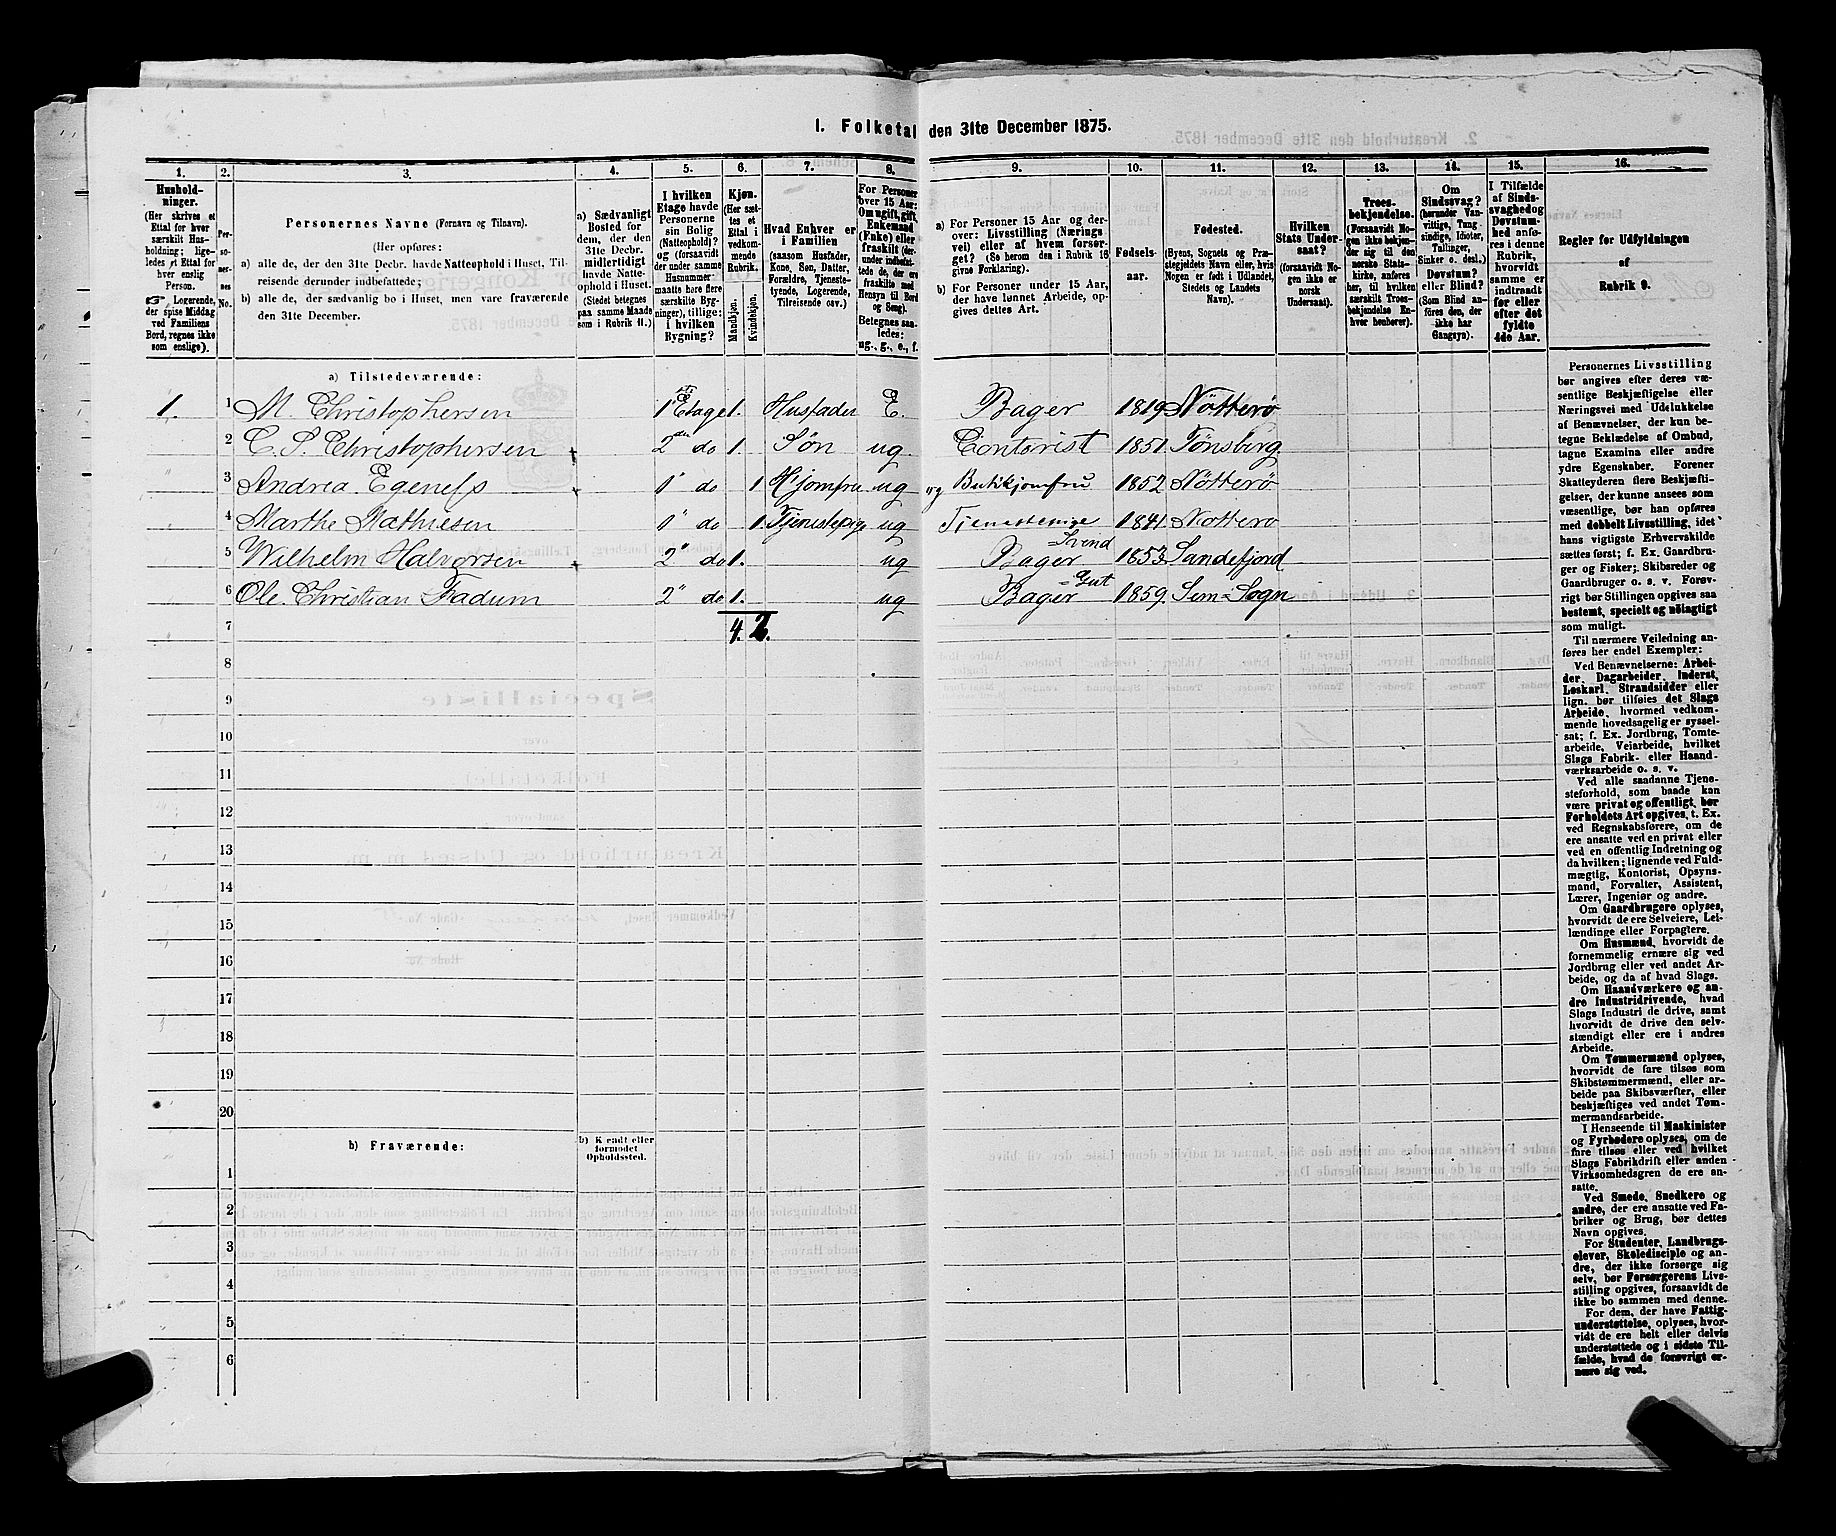 I. Folketal den 31te December 1875.
1. 2. 3. 4. 5. 6. 7. 8. 9. 10. 11. 12. 13. 14. 15. 16.
Husholdninger.
(Her skrives et Ettal for hver særskilt Husholdning; ligeledes et Ettal for hver enslig Person.
☞ Logerende, der spise Middag ved Familiens Bord, regnes ikke som enslige).
Personernes No.
Personernes Navne (Fornavn og Tilnavn).
(Her opføres:
a) alle de, der den 31te Decbr. havde Natteophold i Huset, Tilreisende derunder indbefattede;
b) alle de, der sædvanlig bo i Huset, men vare fraværende den 31te December.
a) Sædvanligt Bosted for dem, der den 31te Decbr. midlertidigt havde Natteophold i Huset.
(Stedet betegnes paa samme Maade som i Rubrik 11.)
I hvilken Etage havde Personerne sin Bolig (Natteophold)? og (forsaavidt der under samme Husnummer maatte høre flere særskilte Bygninger), tillige: i hvilken Bygning?
Kjøn.
(Her sættes et Ettal i vedkommende Rubrik.
Mandkjøn. Kvindekjøn.
Hvad Enhver er i Familien
(saasom Husfader, Kone, Søn, Datter, Forældre, Tjenestetyende, Logerende, Tilreisende osv.)
For Personer over 15 Aar: Om ugift, gift, Enkemand (Enke) eller fraskilt (derunder indbefattede de, der ere fraskilte med Hensyn til Bord og Seng).
Betegnes saaledes: ug., g., e., f.
a) For Personer 15 Aar og derover: Livsstilling (Næringsvei) eller af hvem forsørget? (Se herom den i Rubrik 16 givne Forklaring).
b) For Personer under 15 Aar, der have lønnet Arbeide, opgives dettes Art.
Fødselsaar.
Fødested.
(Byens, Sognets og Præstegjeldets Navn eller, hvis Nogen er født i Udlandet, Stedets og Landets Navn).
Hvilken Stats Undersaat?
(forsaavidt Nogen ikke er norsk Undersaat).
Troesbekjendelse.
(Forsaavidt Nogen ikke bekjender sig til den norske Statskirke, anføres her, til hvilken særskilt Troesbekjendelse Enhver henhører).
Om Sindssvag? (herunder Vanvittige, Tungsindige, Idioter, Tullinger, Sinker o. desl.)
Døvstum? eller Blind? (Som Blind anføres den, der ikke har Gangsyn).
I Tilfælde af Sindssvaghed og Døvstumhed anføres i denne Rubrik, hvorvidt samme er indtraadt før eller efter det fyldte 4de Aar.
Regler for Udfyldningen af Rubrik 9.
a) Tilstedeværende:
1. 1 M. Christophersen 1ste Etage 1. Husfader E. Bager 1819 Nötterö
2 C. S. Christophersen 2den do 1. Søn ug. Contorist 1851. Tønsberg.
3 Andrea Egenefs 1" do 1 H'jomfru ug Butikjomfru 1852 Nötterö
4 Marthe Mathiesen 1" do 1. Tjenestepige ug Tjenestepige 1841. Nötterö
5 Wilhelm Halvorsen 2" do 1. ug Bager=Svend 1853. Sandefjord
6 Ole Christian Fadum 2" do 1. ug Bager=Gut 1859. Sem=Sogn
7 4. 2.
8
9
10
11
12
13
14
15
16
17
18
19
20
b) Fraværende: b) Kjendt eller formodet Opholdssted.
1
2
3
4
5
6
Personernes Livsstilling
bør angives efter deres væsentlige
Beskjæftigelse eller
Næringsvei med Udelukkelse
af Benævnelser, der kun betegne
Beklædelse af Ombud,
tagne Examina eller andre
ydre Egenskaber. Forener
Skatteyderen flere Beskjæftigelser,
der kunne ansees som
væsentlige, bør han opføres
med dobbelt Livsstilling, idet
hans vigtigste Erhvervskilde
sættes først; f. Ex. Gaardbruger
og Fisker; Skibsreder og
Gaardbruger o. s. v. Forøvrigt
bør Stillingen opgives saa
bestemt, specielt og nöiagtigt
som muligt.
Til nærmere Veiledning anføres
her endel Exempler:
Ved Benævnelserne: Arbeider,
Dagarbeider, Inderst,
Løskarl, Strandsidder eller
lign. bør tilføies det Slags
Arbeide, hvormed vedkommende
hovedsagelig er sysselsat;
f. Ex. Jordbrug, Tomtearbeide,
Veiarbeide, hvilket
Slags Fabrik- eller Haandværksarbeide
o. s. v.
Ved alle saadanne Tjenesteforhold,
som baade kan
være privat og offentligt, bør
Forholdets Art opgives, t. Ex.
ved Regnskabsførere, om de
ere ansatte ved en privat eller
ved en offentlig Indretning og
da hvilken; lignende ved Fuldmægtig,
Kontorist, Opsynsmand,
Forvalter, Assistent,
Lærer, Ingeniør og andre.
Om Gaardbrugere oplyses,
hvorvidt de ere Selveiere, Leilændinge
eller Forpagtere.
Om Husmænd, hvorvidt de
fornemmelig ernære sig ved
Jordbrug eller ved andet Arbeide,
og da af hvad Slags.
Om Haandværkere og andre
Industridrivende, hvad
Slags Industri de drive, samt
hvorvidt de drive den selvstændigt
eller ere i andres
Arbeide.
Om Tømmermænd oplyses,
hvorvidt de fare tilsøs som
Skibstømmermænd, eller arbeide
paa Skibsværfter, eller
beskjæftiges ved andet Tømmermandsarbeide.
I Henseende til Maskinister
og Fyrbødere oplyses, om de
fare tilsøs eller ved hvilket
Slags Fabrikdrift eller anden
Virksomhedsgren de ere ansatte.
Ved Smede, Snedkere og
andre, der ere ansatte ved Fabriker
og Brug, bør dettes
Navn opgives.
For Studenter, Landbrugselever,
Skoledisciple og andre,
der ikke forsørge sig
selv, bør Forsørgerens Livsstilling
opgives, forsaavidt de
ikke bo sammen med denne.
For dem, der have Fattigunderstøttelse,
oplyses, hvorvidt
de ere helt eller delvis
understøttede og i sidste Tilfælde,
hvad de forøvrigt ernære
sig ved.